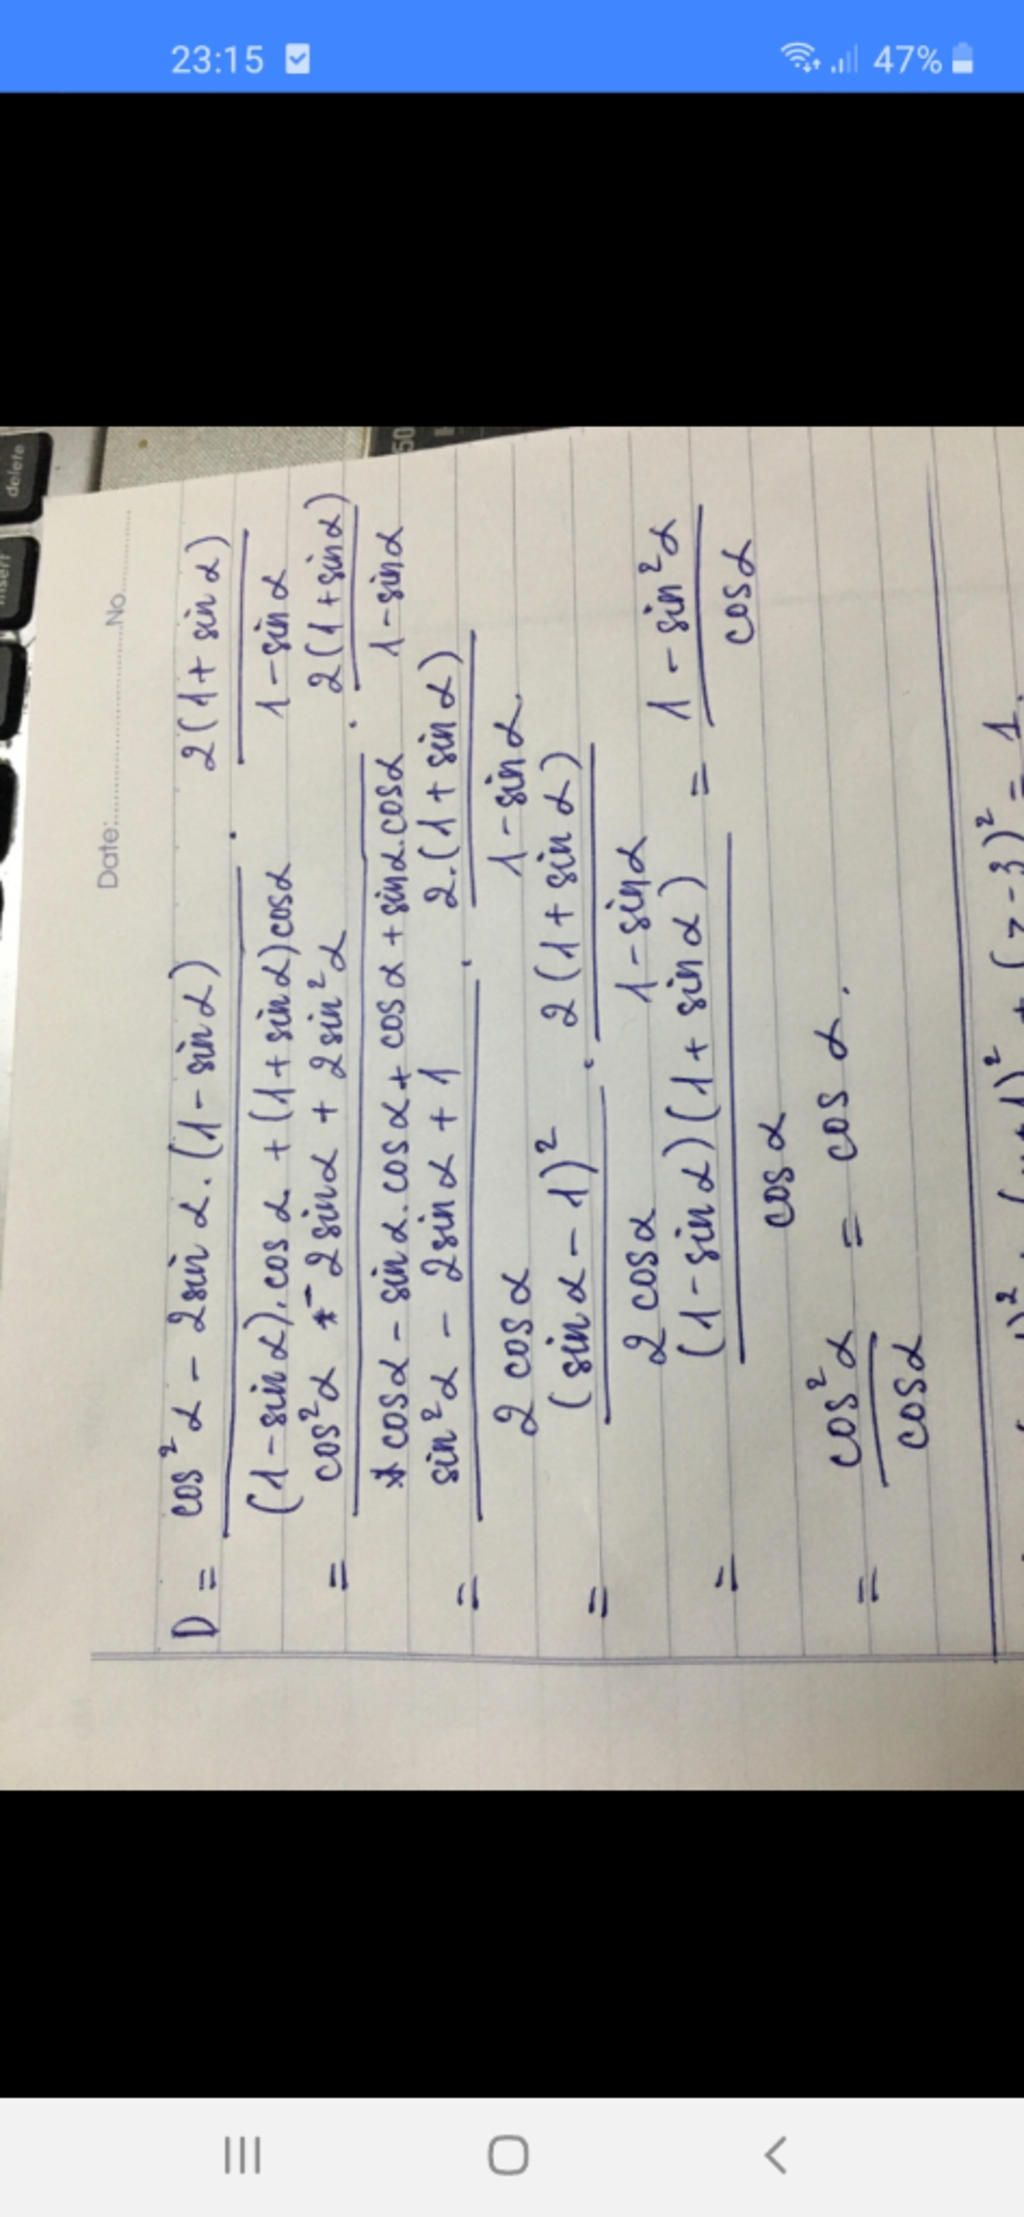 23:15
47%
delete
insert
50
Date:..........No..........
D = cos² α - 2sin α. (1 - sin α) / (1 - sin α). cos α + (1 + sin α) cos α . 2(1 + sin α) / 1 - sin α
= cos² α - 2sin α + 2sin² α / cos α - sin α. cos α + cos α + sin α. cos α . 2(1 + sin α) / 1 - sin α
= sin² α - 2sin α + 1 / 2 cos α . 2.(1 + sin α) / 1 - sin α
= (sin α - 1)² / 2 cos α . 2(1 + sin α) / 1 - sin α
= (1 - sin α)(1 + sin α) / cos α = 1 - sin² α / cos α
= cos² α / cos α = cos α.